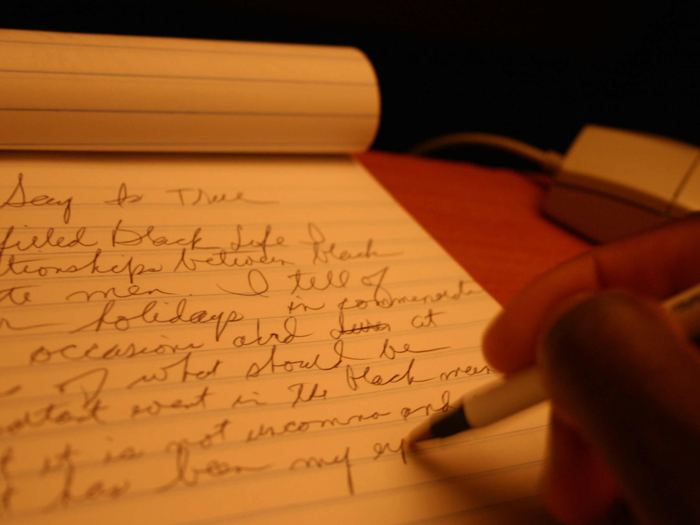 Say Is True
filled Black Life
tionships between black
te men. I tell of
holidays, in
occasions and at
of what should be
event in the black men
t it is not uncommon and
t has been my ex